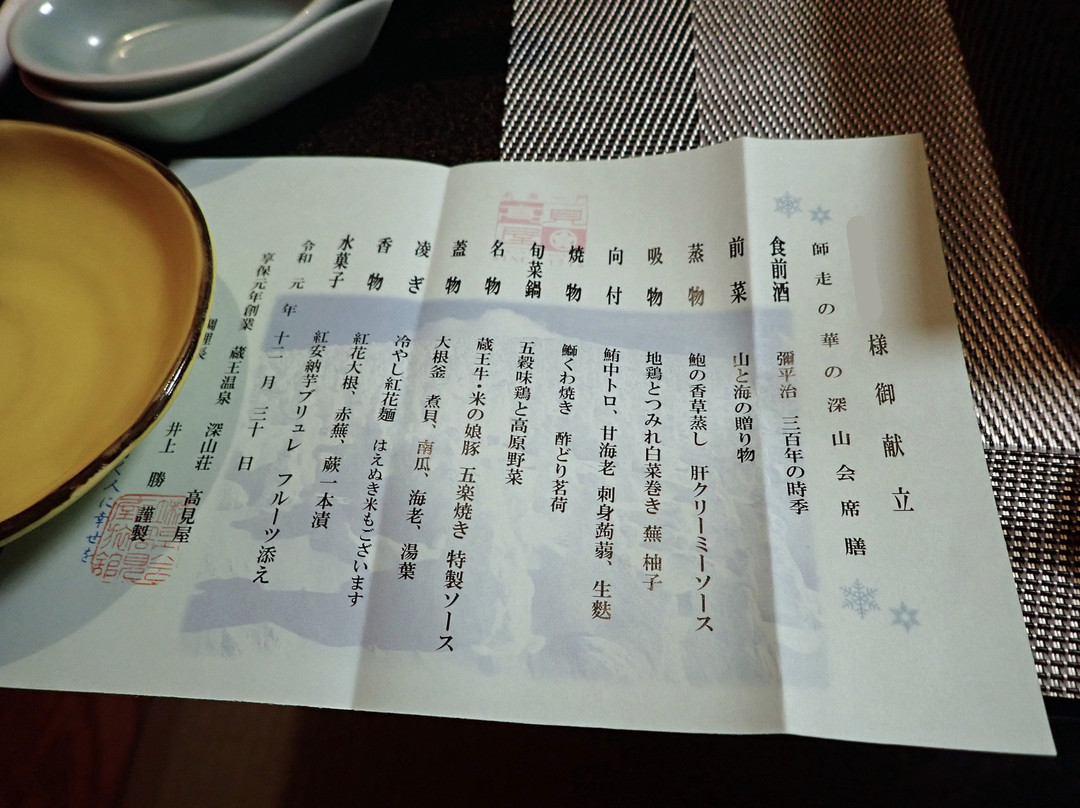 様御献立
師走の華の深山会席膳
食前酒 彌平治 三百年の時季
前菜 山と海の贈り物
蒸物 鮑の香草蒸し 肝クリーミーソース
吸物 地鶏とつみれ白菜巻き 蕪 柚子
向付 鮪中トロ、甘海老 刺身蒟蒻、生麩
焼物 鰤くわ焼き 酢どり茗荷
旬菜鍋 五穀味鶏と高原野菜
名物 蔵王牛・米の娘豚 五楽焼き 特製ソース
蓋物 大根釜 煮貝、南瓜、海老、湯葉
凌ぎ 冷やし紅花麺 はえぬき米もございます
香物 紅花大根、赤蕪、蕨一本漬
水菓子 紅安納芋ブリュレ フルーツ添え
令和元年十二月三十日
享保元年創業 蔵王温泉 深山荘 高見屋
調理長 井上 勝 謹製